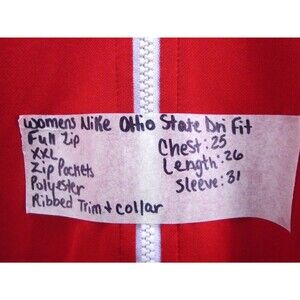 Womens Nike Ohio State Dri Fit
Full Zip
XXL
Zip Pockets
Polyester
Ribbed Trim + Collar
Chest: 25
Length: 26
Sleeve: 31